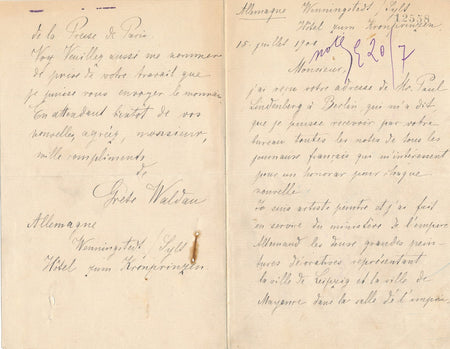 Allemagne Wenningstedt / Sylt
Hôtel zum Kronprinzen
12558
15. juillet 1900
noté E 20/7
Monsieur,
j'ai reçu votre adresse de Mr. Paul
Lindenberg à Berlin qui m'a dit
que je puisse recevoir par votre
bureau toutes les notes de tous les
journaux français qui m'intéressent
pour un honorar pour chaque
nouvelle.
Je suis artiste peintre et j'ai fait
en service du ministère de l'empire
Allemand les deux grandes pein-
tures décoratives, représentant
la ville de Leipzig et la ville de
Mayence dans la salle de l'empire
de la Presse de Paris.
Vous Veuillez aussi me nommer
prix de votre travail que
je puisse vous envoyer le monnai
En attendant bientôt de vos
nouvelles agréez, monsieur,
mille compliments
de
Grete Waldau
Allemagne
Wenningstedt / Sylt
Hôtel zum Kronprinzen